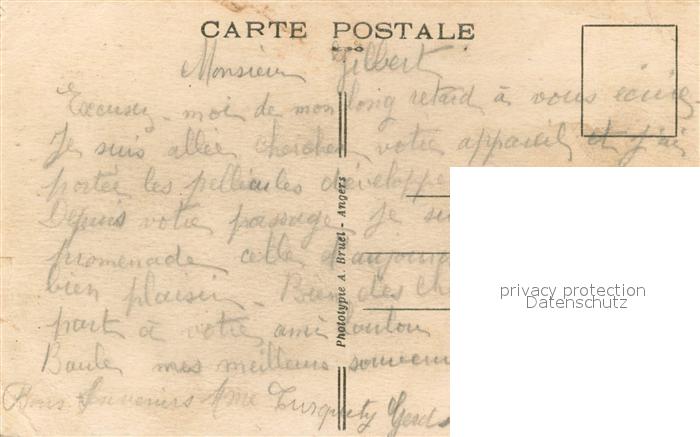 CARTE POSTALE
Monsieur Gilbert
Excusez-moi de mon long retard à vous écrire
Je suis allée chercher votre appareil et j'ai
portée les pellicules développe
Depuis votre passage je su
promenade celle d'aujourd
bien plaisir. Bien des cho
part à votre ami
Baule mes meilleurs souvenir
Bons Souvenirs Mme Turquety
Phototypie A. Bruel - Angers
privacy protection
Datenschutz